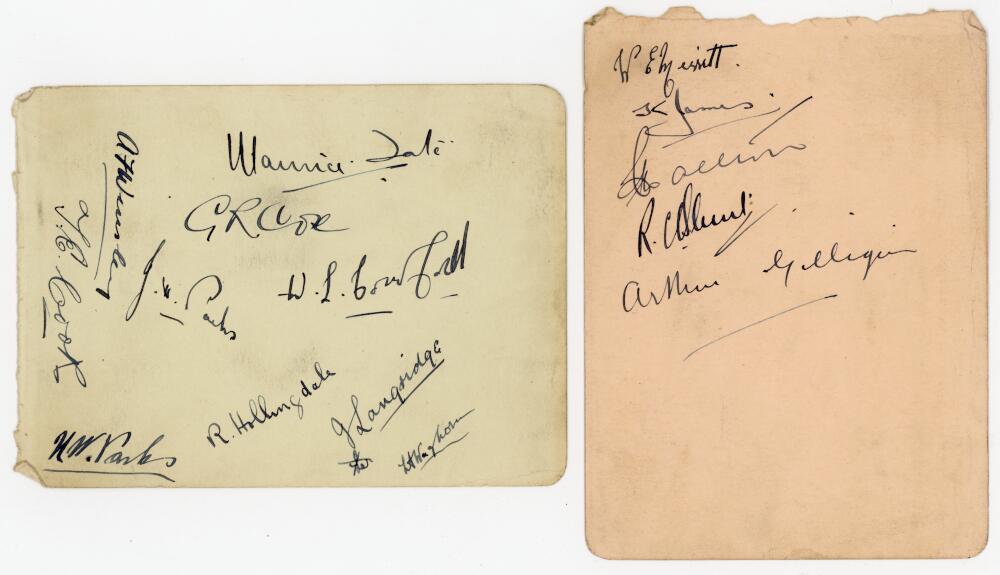 Maurice Tate
A F Wensley
G R Cox
T. E. Cook
J. H. Parks
W. L. Cornford
R. Hollingdale
J Langridge
H. W. Parks
W E Merritt.
K James.
R. C Blunt
Arthur Gilligan